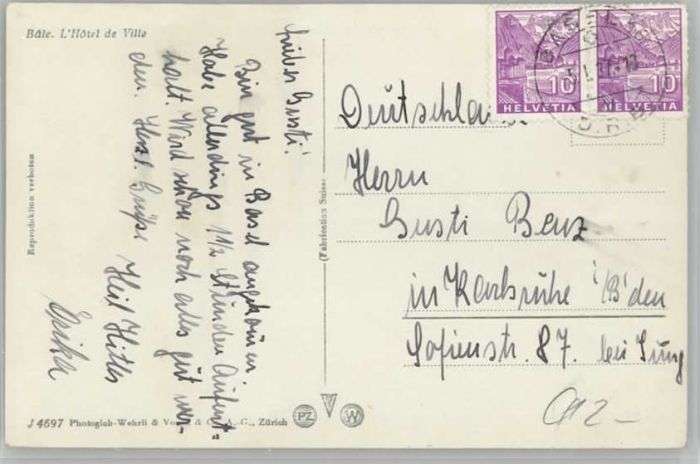 Bâle. L'Hôtel de Ville
Lieber Gusti!
Bin gut in Basel angekommen
Habe allerdings 1 1/2 Stunden Aufent-
halt. Wird schon noch alles gut wer-
den. Herzl. Grüße Heil Hitler
Erika
Reproduktion verboten
(Fabrication Suisse)
10 HELVETIA
10 HELVETIA
BASEL
Deutschland
Herrn
Gusti Benz
in Karlsruhe i/B'den
Sofienstr. 87. bei Jung
J 4697 Photoglob-Wehrli & A. G., Zürich
PZ
W